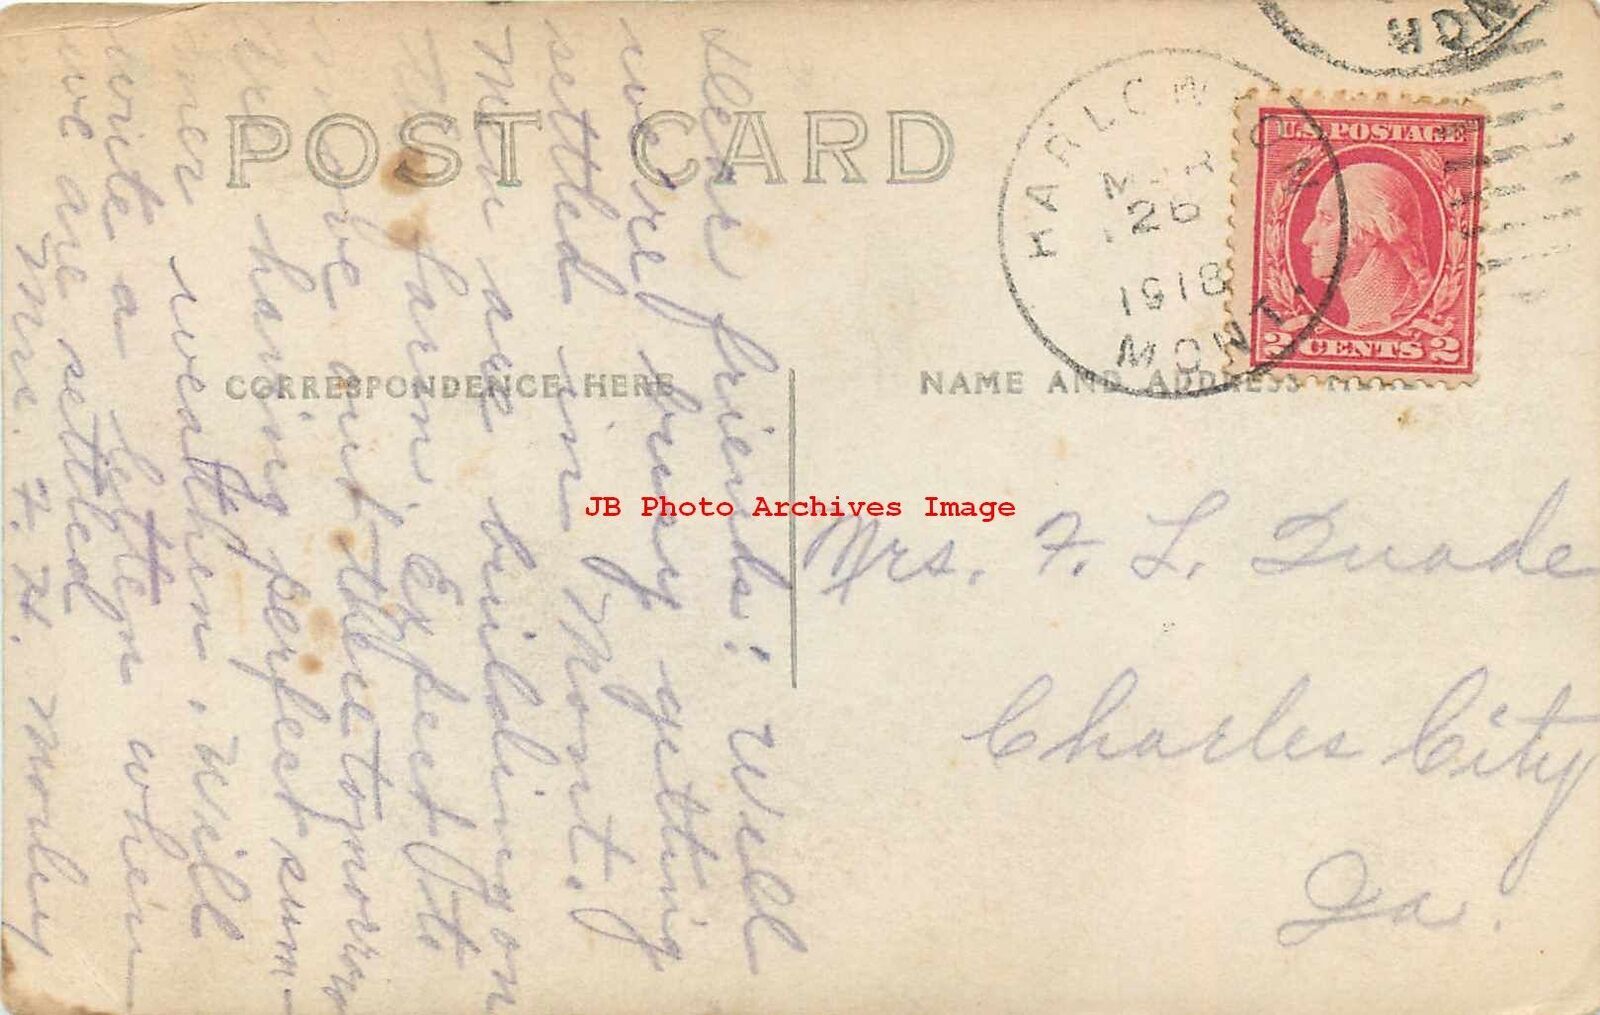 POST CARD
CORRESPONDENCE HERE
NAME AND ADDRESS
HARLOWTON
MAR
26
1918
MONT.
MON
U.S. POSTAGE
2 CENTS 2
JB Photo Archives Image
Mrs. F. L. Quade
Charles City
Ia.
Dear friends: Well
we're busy getting
settled in Mont.
Men are building on
the farm. Expect to
move out there tomorrow
are having perfect sum-
mer weather. Will
write a letter when
we are settled
Mrs. F. H. Morley